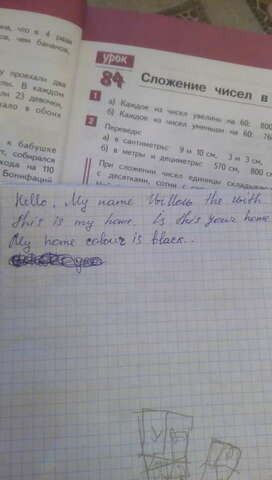 на, что в 4 раза
ов, чем бананов,
у проехали два
ы. В каждом
ли 23 девочки,
хало в обоих
к бабушке
собирался
хода на 110
Бонифаций
урок
84 Сложение чисел в
1 а) Каждое из чисел увеличь на 60: 800
б) Каждое из чисел уменьши на 60: 76
2 Переведи:
а) в сантиметры: 9 м 10 см, 3 м 3 см,
б) в метры и дециметры: 570 см, 800 см
При сложении чисел единицы складываю
с десятками, сотни с
Hello. My name Willow the with
this is my home. is this your home
My home colour is black..